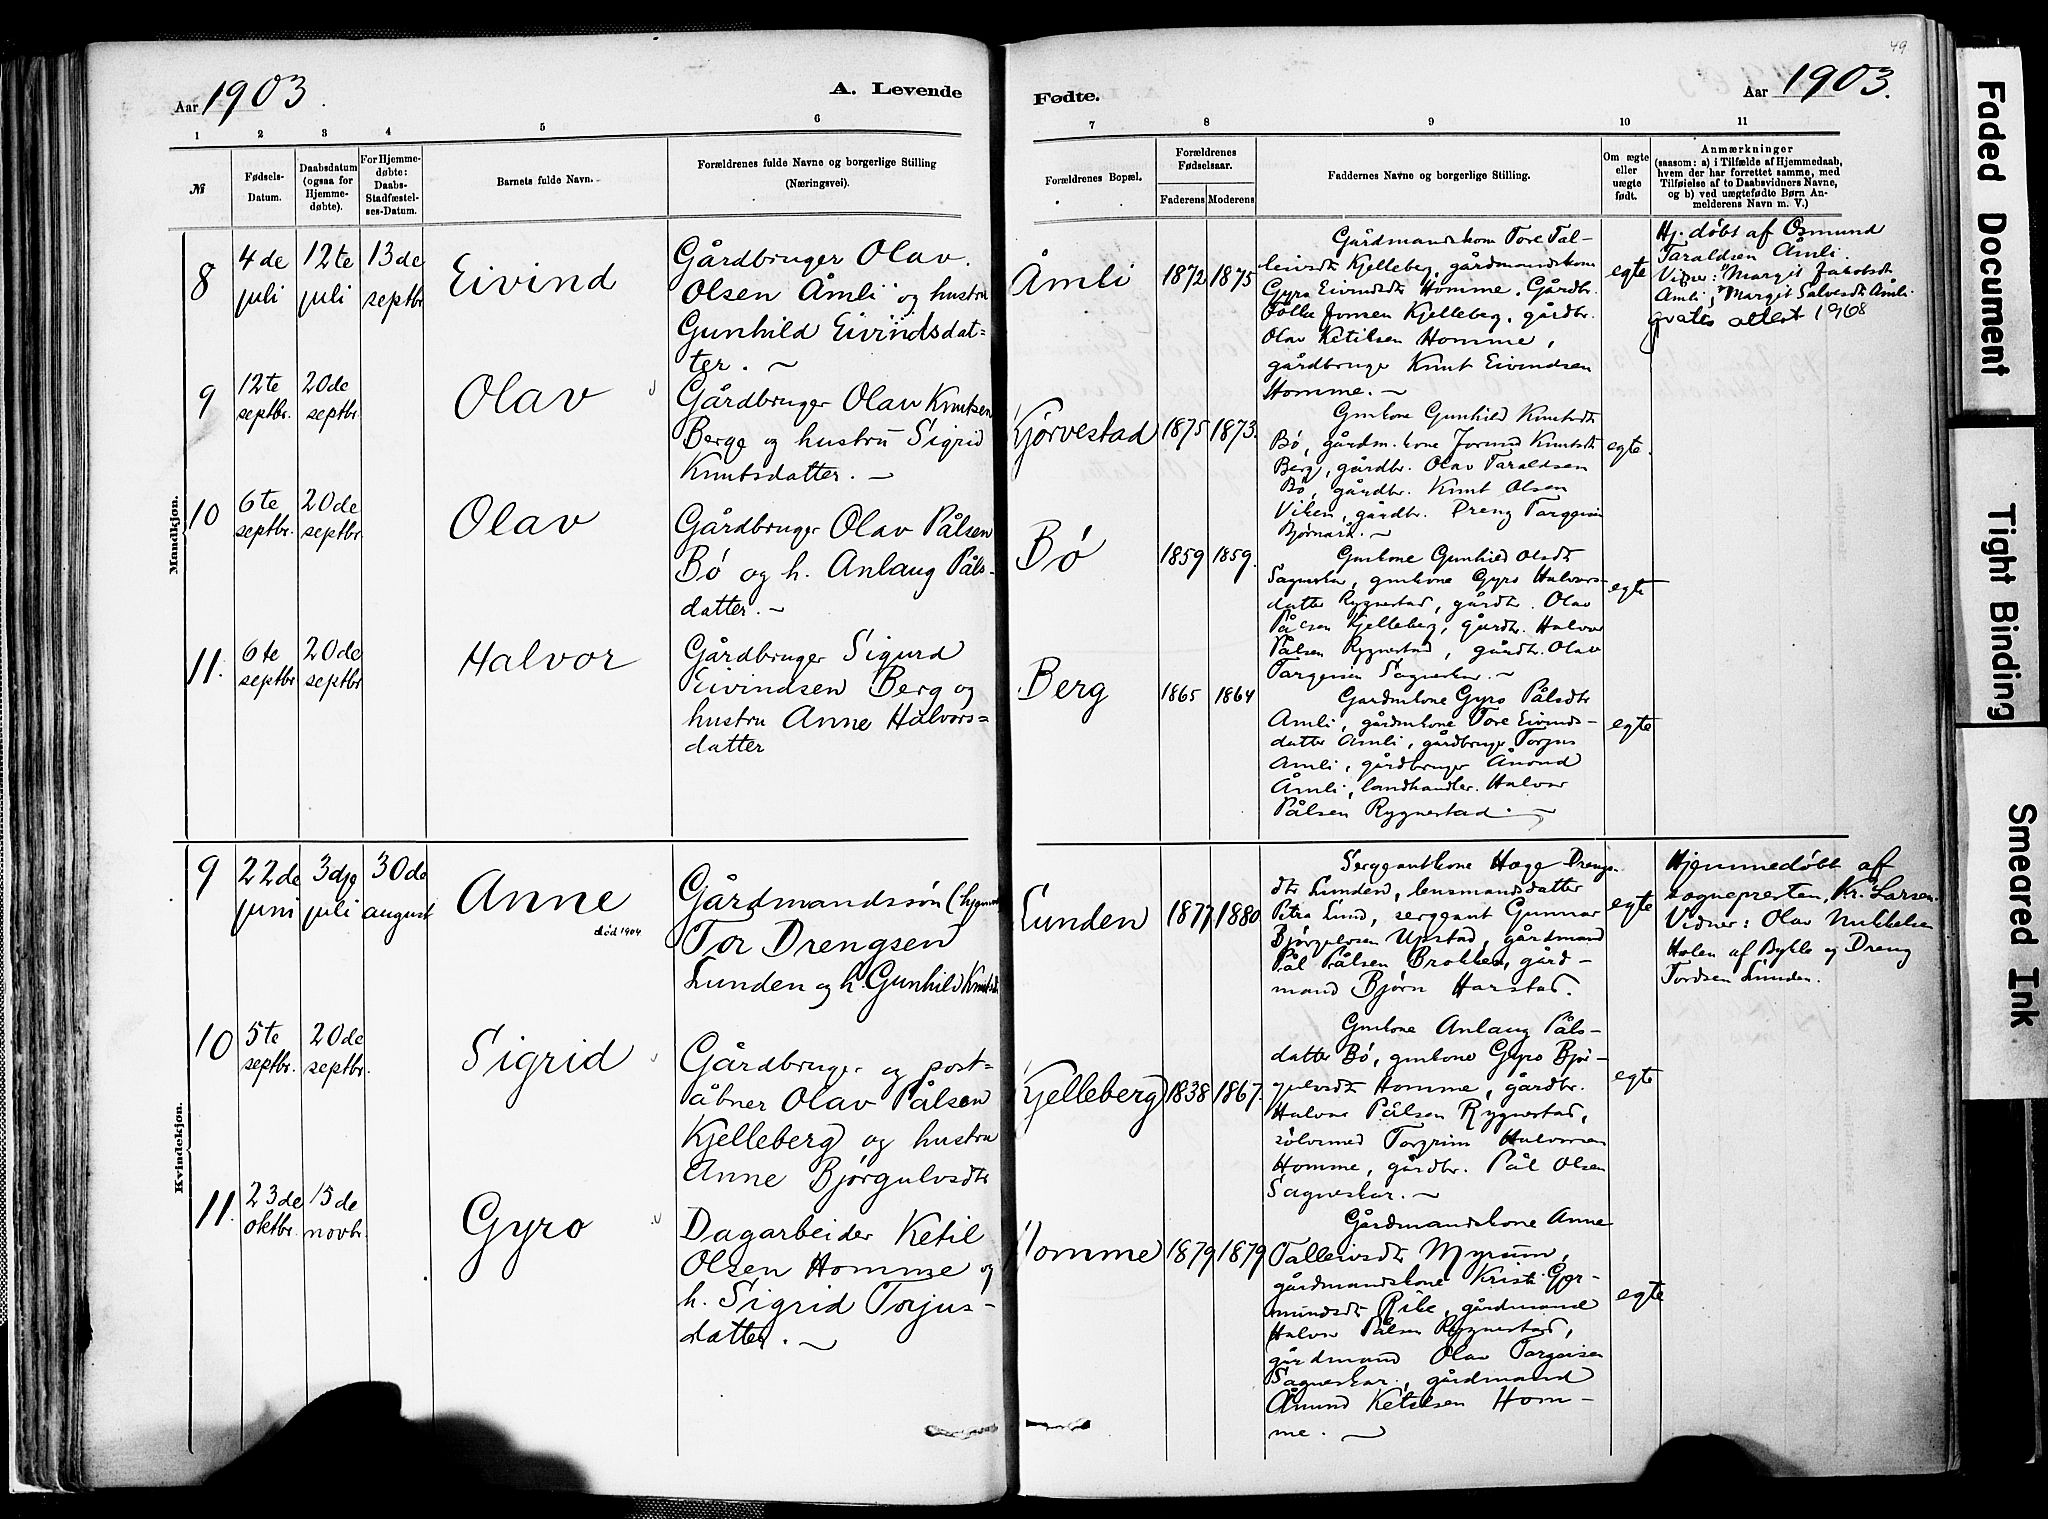 49
Aar 1903.
A. Levende
Fødte.
Aar 1903.
1 2 3 4 5 6 7 8 9 10 11
№
Fødsels-
Datum.
Daabsdatum
(ogsaa for
Hjemme-
døbte).
For Hjemme-
døbte:
Daabs-
Stadfæstel-
ses-Datum.
Barnets fulde Navn.
Forældrenes fulde Navne og borgerlige Stilling
(Næringsvei).
Forældrenes Bopæl.
Forældrenes
Fødselsaar.
Faderens Moderens
Faddernes Navne og borgerlige Stilling.
Om ægte
eller
uægte
født.
Anmærkninger
(saasom: a) i Tilfælde af Hjemmedaab,
hvem der har forrettet samme, med
Tilføielse af to Daabsvidners Navne,
og b) ved uægtefødte Børn An-
melderens Navn m. V.)
Mandkjøn.
8
4de
juli
12te
juli
13de
septbr
Eivind
Gårdbruger Olav
Olsen Åmli og hustru
Gunhild Eivindsdat-
ter. ~
Åmli
1872 1875
Gårdmandskom Tore Tal-
leivsdt Kjelleberg, gårdmandskom
Gyro Eivindsdt Homme. Gårdbr.
Folke Jonsen Kjelleberg, gårdbr.
Olav Ketilsen Homme,
gårdbruger Knut Eivindsen
Homme. ~
egte
Hj. døbt af Osmund
Taraldsen Åmli.
Vidner: Margit Jakobsdt
Åmli, Margit Salvesdt Åmli.
gratis attest 1968
9
12te
septbr.
20de
septbr.
Olav
Gårdbruger Olav Knutsen
Berge og hustru Sigrid
Knutsdatter. ~
Kjørvestad
1875 1873.
Gmkone Gunhild Knutsdt
Bø, gårdm.kone Jorund Knutsdt
Berg, gårdbr. Olav Taraldsen
Bø, gårdbr. Knut Olsen
Viken, gårdbr. Dreng Targeisen
Bjørnarå. ~
egte.
10
6te
septbr.
20de
septbr.
Olav
Gårdbruger Olav Pålsen
Bø og h. Anlaug Påls-
datter. ~
Bø
1859 1859.
Gmkone Gunhild Olsdt
Sagneskar, gmkone Gyro Halvors-
datter Rygnestad, gårdbr. Olav
Pålsen Kjelleberg, gårdbr. Halvor
Pålsen Rygnestad, gårdbr. Olav
Targeisen Sagneskar. ~
egte
11.
6te
septbr
20de
septbr
Halvor
Gårdbruger Sigurd
Eivindsen Berg og
hustru Anne Halvors=
datter
Berg
1865 1864
Gardmkone Gyro Pålsdtr
Åmli, gårdmkone Tore Eivinds-
datter Åmli, gårdbruger Torjus
Åmli, gårdbruger Ånond
Åmli, landhandler Halvor
Pålsen Rygnestad. ~
egte
Kvindekjøn.
9
22de
juni
3dje
juli
30de
august
Anne
død 1904
Gårdmandssøn
Tor Drengsen
Lunden og h. Gunhild Knutsdt
Lunden
1877 1880
Serggantkone Hæge Drengs-
dtr Lunden, lensmandsdatter
Petra Lund, serggant Gunnar
Bjørgulvsen Upstad, gårdmand
Pål Pålsen Brokken, gård-
mand Bjørn Harstad.
egte
Hjemmedøbt af
sogneprsten, Kr. Larsen.
Vidner: Olav Nikkelsen
Holen af Bykle og Dreng
Tordsen Lunden.
10
5te
septbr.
20de
septbr.
Sigrid
Gårdbruger og post-
åbner Olav Pålsen
Kjelleberg og hustru
Anne Bjørgulvsdtr
Kjelleberg
1838 1867.
Gmkone Anlaug Påls-
datter Bø, gmkone Gyro Bjø-
gulvsdt Homme, gårdbr.
Halvor Pålsen Rygnestad,
sølvsmed Torgrim Halvorsen
Homme, gårdbr. Pål Olsen
Sagneskar. ~
egte
11.
23de
oktbr.
15de
novbr.
Gyro
Dagarbeider Ketil
Olsen Homme og
h. Sigrid Torjus-
datter. ~
Homme
1879 1879
Gårdmandskone Anne
Talleivsdt Myrum,
gårdmandskone Kristi Gjer-
mundsdt Rike, gårdmand
Halvor Pålsen Rygnestad,
gårdmand Olav Targeisen
Sagneskar, gårdmand
Åmund Ketilsen Hom-
me. ~
egte
Faded Document
Tight Binding
Smeared Ink